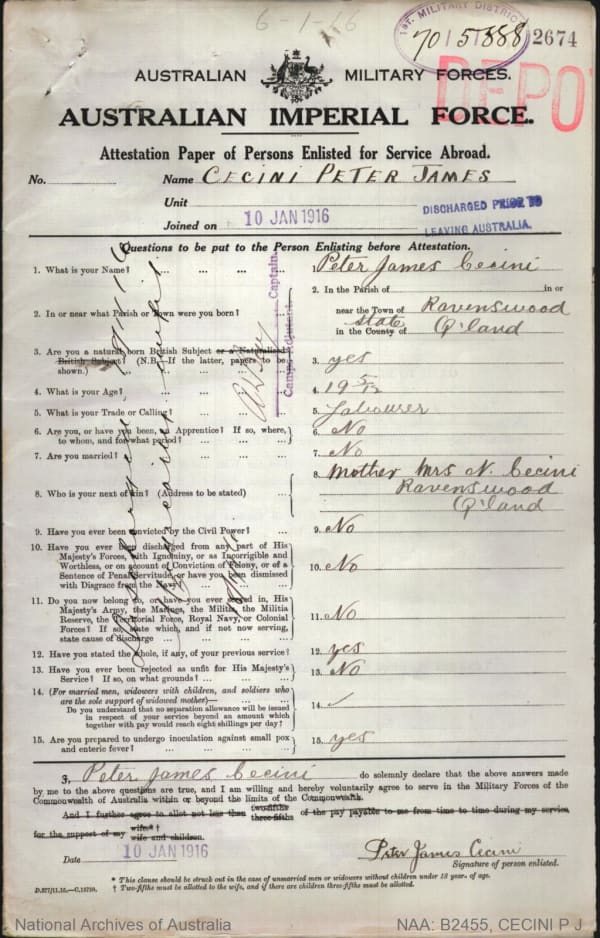 6-1-16
1ST. MILITARY DISTRICT
70 15888 2674
DEPO
AUSTRALIAN MILITARY FORCES.
AUSTRALIAN IMPERIAL FORCE.
Attestation Paper of Persons Enlisted for Service Abroad.
No. Name CECINI PETER JAMES
Unit
Joined on 10 JAN 1916
DISCHARGED PRIOR TO
LEAVING AUSTRALIA.
Questions to be put to the Person Enlisting before Attestation.
1. What is your Name? ... ... ... ... Peter James Cecini
2. In or near what Parish or Town were you born? ... 2. In the Parish of in or
near the Town of Ravenswood
in the County of state Q'land
3. Are you a natural born British Subject or a Naturalized
British Subject? (N.B.—If the latter, papers to be
shown.) 3. yes
4. What is your Age? ... ... ... ... 4. 19 5/12
5. What is your Trade or Calling? ... ... ... 5. Labourer
6. Are you, or have you been, an Apprentice? If so, where,
to whom, and for what period? ... ... 6. No
7. Are you married? ... ... ... ... 7. No
8. Who is your next of kin? (Address to be stated) ... 8. Mother Mrs N. Cecini
Ravenswood
Q'land
9. Have you ever been convicted by the Civil Power? ... 9. No
10. Have you ever been discharged from any part of His
Majesty's Forces, with Ignominy, or as Incorrigible and
Worthless, or on account of Conviction of Felony, or of a
Sentence of Penal Servitude, or have you been dismissed
with Disgrace from the Navy? 10. No
11. Do you now belong to, or have you ever served in, His
Majesty's Army, the Marines, the Militia, the Militia
Reserve, the Territorial Force, Royal Navy, or Colonial
Forces? If so, state which, and if not now serving,
state cause of discharge ... ... 11. No
12. Have you stated the whole, if any, of your previous service? 12. yes
13. Have you ever been rejected as unfit for His Majesty's
Service? If so, on what grounds? ... ... 13. No
14. (For married men, widowers with children, and soldiers who
are the sole support of widowed mother)—
Do you understand that no separation allowance will be issued
in respect of your service beyond an amount which
together with pay would reach eight shillings per day? 14. ✓
15. Are you prepared to undergo inoculation against small pox
and enteric fever? ... ... ... ... 15. yes
Discharged
medically unfit
Captain
Camp Adjutant
I, Peter James Cecini do solemnly declare that the above answers made
by me to the above questions are true, and I am willing and hereby voluntarily agree to serve in the Military Forces of the
Commonwealth of Australia within or beyond the limits of the Commonwealth.
And I further agree to allot not less than two-fifths three-fifths of the pay payable to me from time to time during my service
for the support of my wife*†
wife and children.
Date 10 JAN 1916 Peter James Cecini
Signature of person enlisted.
* This clause should be struck out in the case of unmarried men or widowers without children under 18 years of age.
D.277/11.15.—C.15790. † Two-fifths must be allotted to the wife, and if there are children three-fifths must be allotted.
National Archives of Australia NAA: B2455, CECINI P J